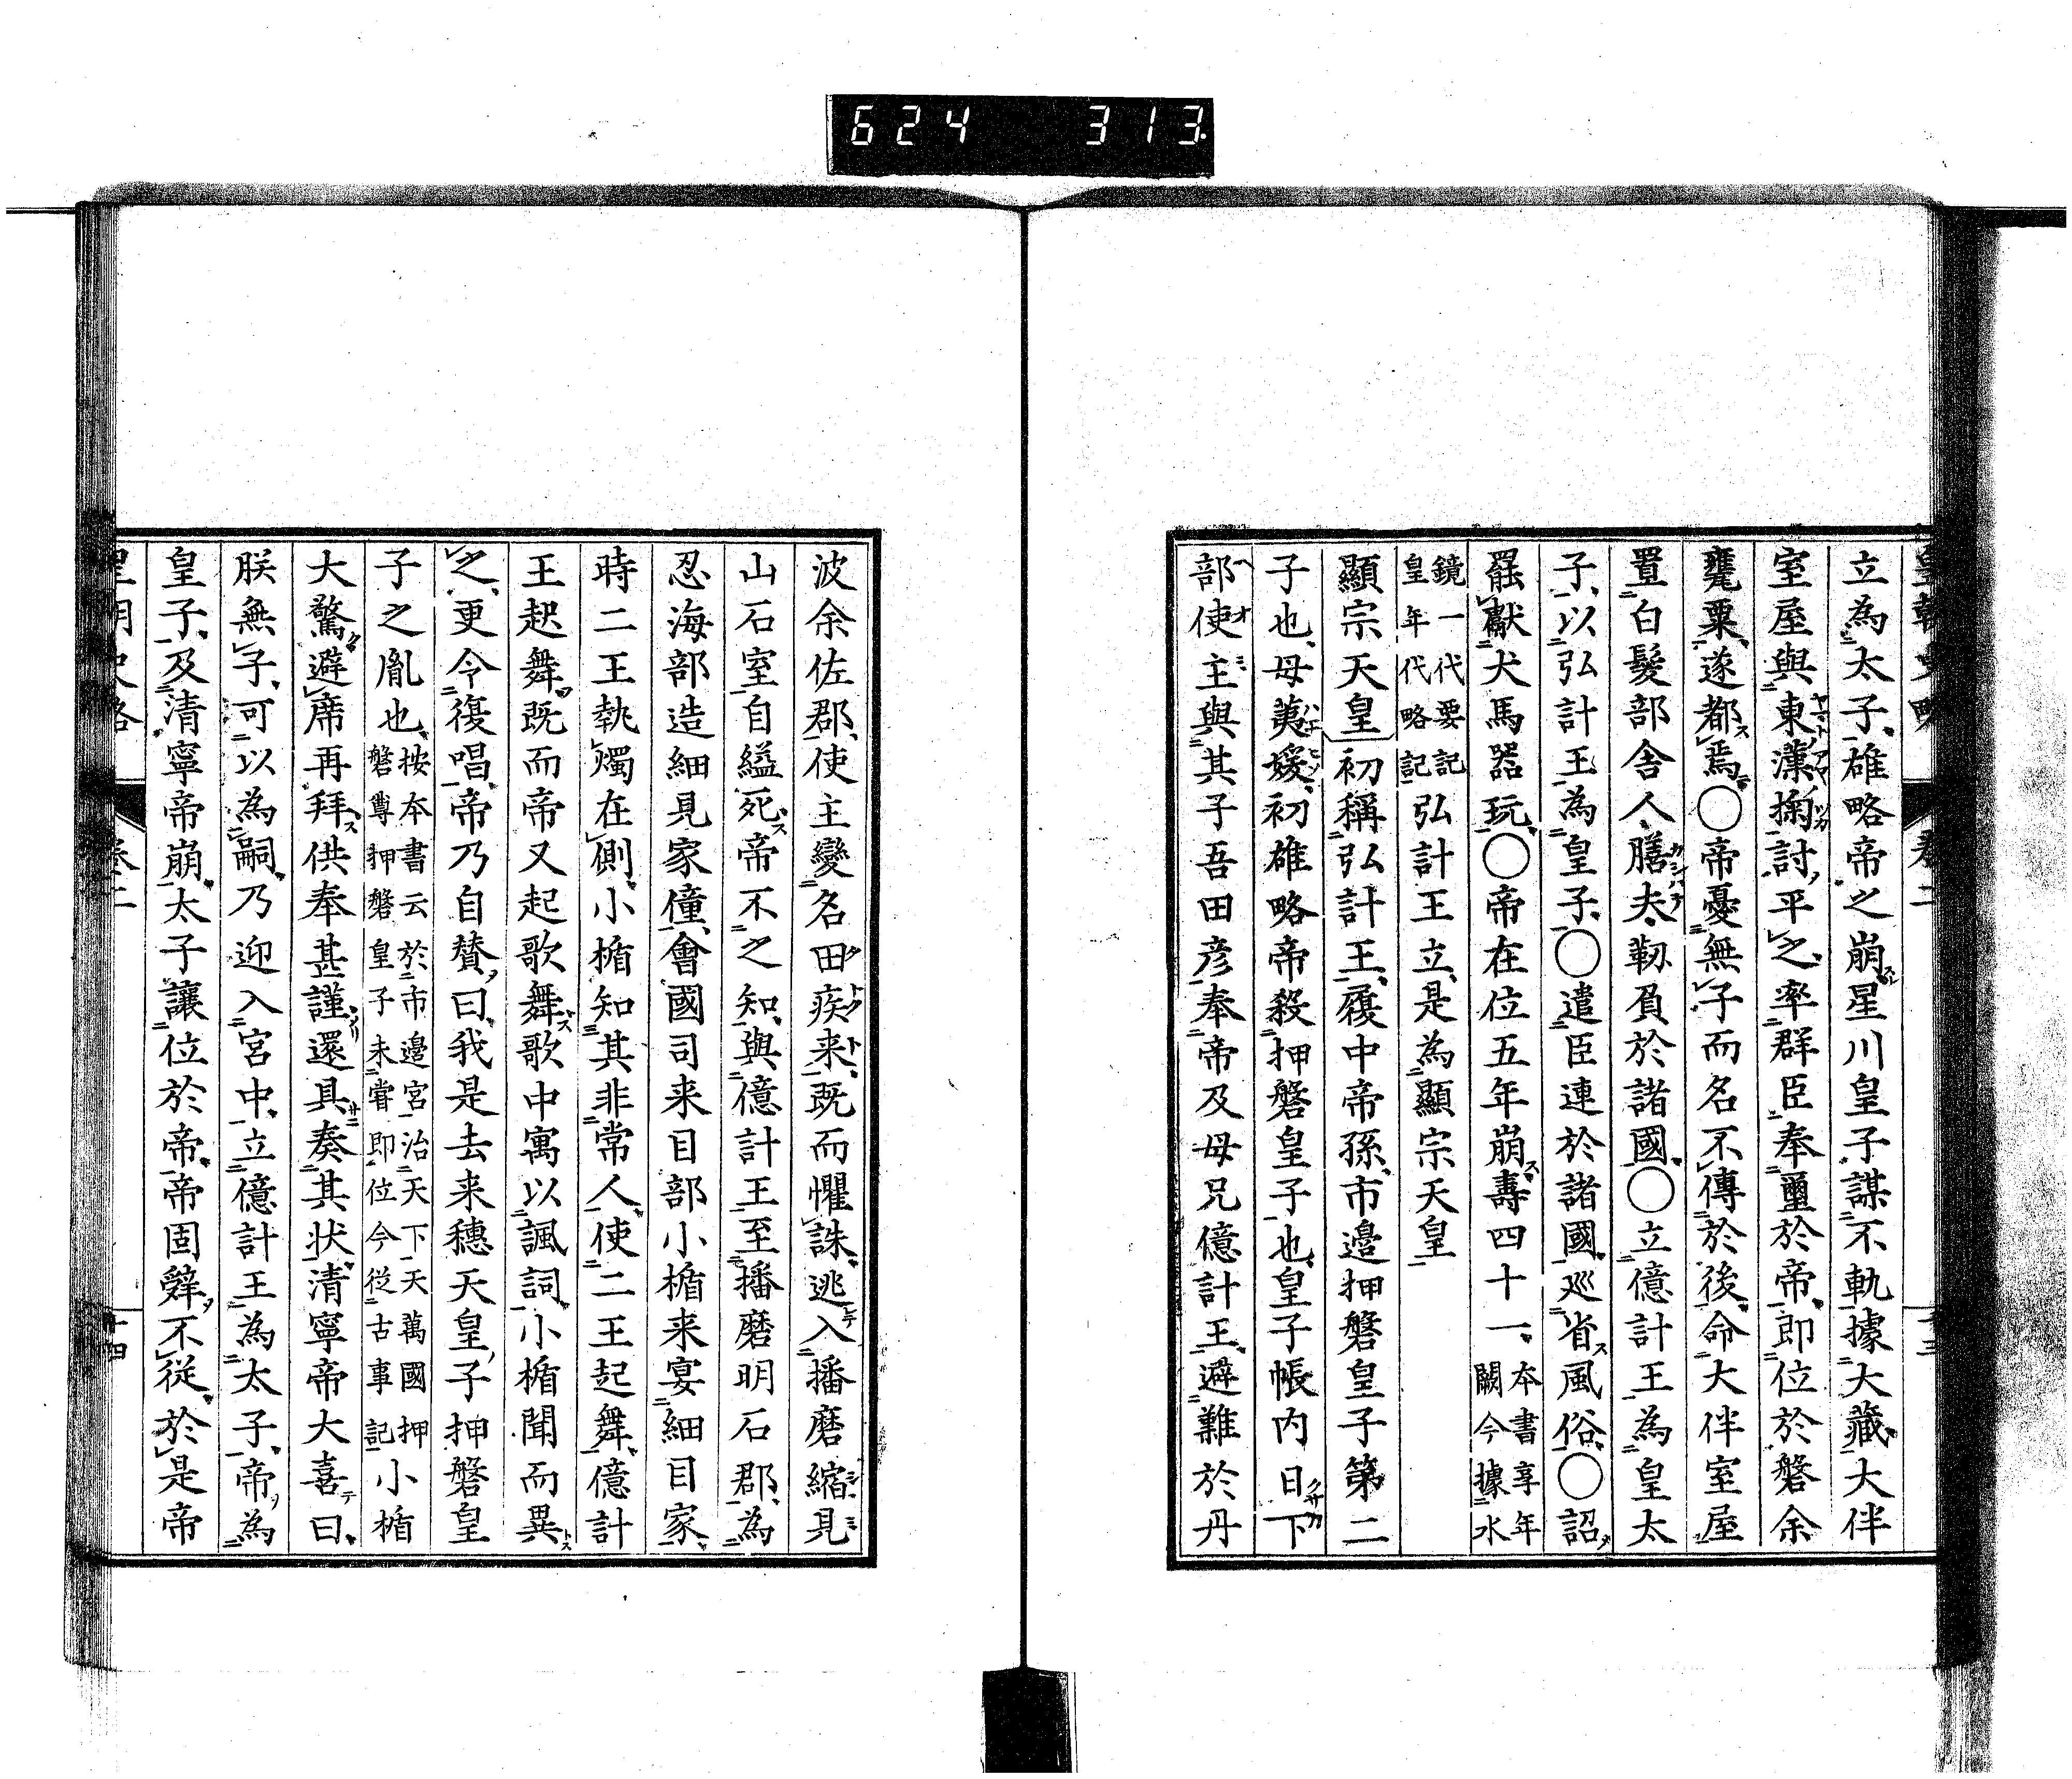 624 313
皇朝史略 卷二 十三
立為太子、雄略帝之崩、星川皇子謀不軌據大藏、大伴
室屋與東漢掬討平之、率群臣奉璽於帝、即位於磐余
甕栗、遂都焉、〇帝憂無子而名不傳於後、命大伴室屋
置白髮部舍人、膳夫、靭負於諸國、〇立億計王為皇太
子、以弘計王為皇子、〇遣臣連於諸國、巡省風俗、〇詔
罷獻犬馬器玩、〇帝在位五年崩、壽四十一、本書享年闕今據水
鏡一代要記皇年代略記弘計王立、是為顯宗天皇
顯宗天皇初稱弘計王、履中帝孫、市邊押磐皇子第二
子也、母荑媛、初雄略帝殺押磐皇子也、皇子帳內日下
部使主與其子吾田彦奉帝及母兄億計王、避難於丹
波余佐郡、使主變名田疾来、既而懼誅、逃入播磨縮見
山石室自縊死、帝不之知、與億計王至播磨明石郡、為
忍海部造細見家僮、會國司来目部小楯来宴細目家、
時二王執燭在側、小楯知其非常人、使二王起舞、億計
王起舞、既而帝又起歌舞、歌中寓以諷詞、小楯聞而異
之、更令復唱、帝乃自賛曰、我是去来穗天皇子押磐皇
子之胤也、按本書云於市邊宮治天下天萬國押磐尊押磐皇子未嘗即位今從古事記小楯
大驚避席再拜、供奉甚謹、還具奏其状、清寧帝大喜曰、
朕無子、可以為嗣、乃迎入宮中、立億計王為太子、帝為
皇子、及清寧帝崩、太子讓位於帝、帝固辭不從、於是帝
皇朝史略 卷二 十四